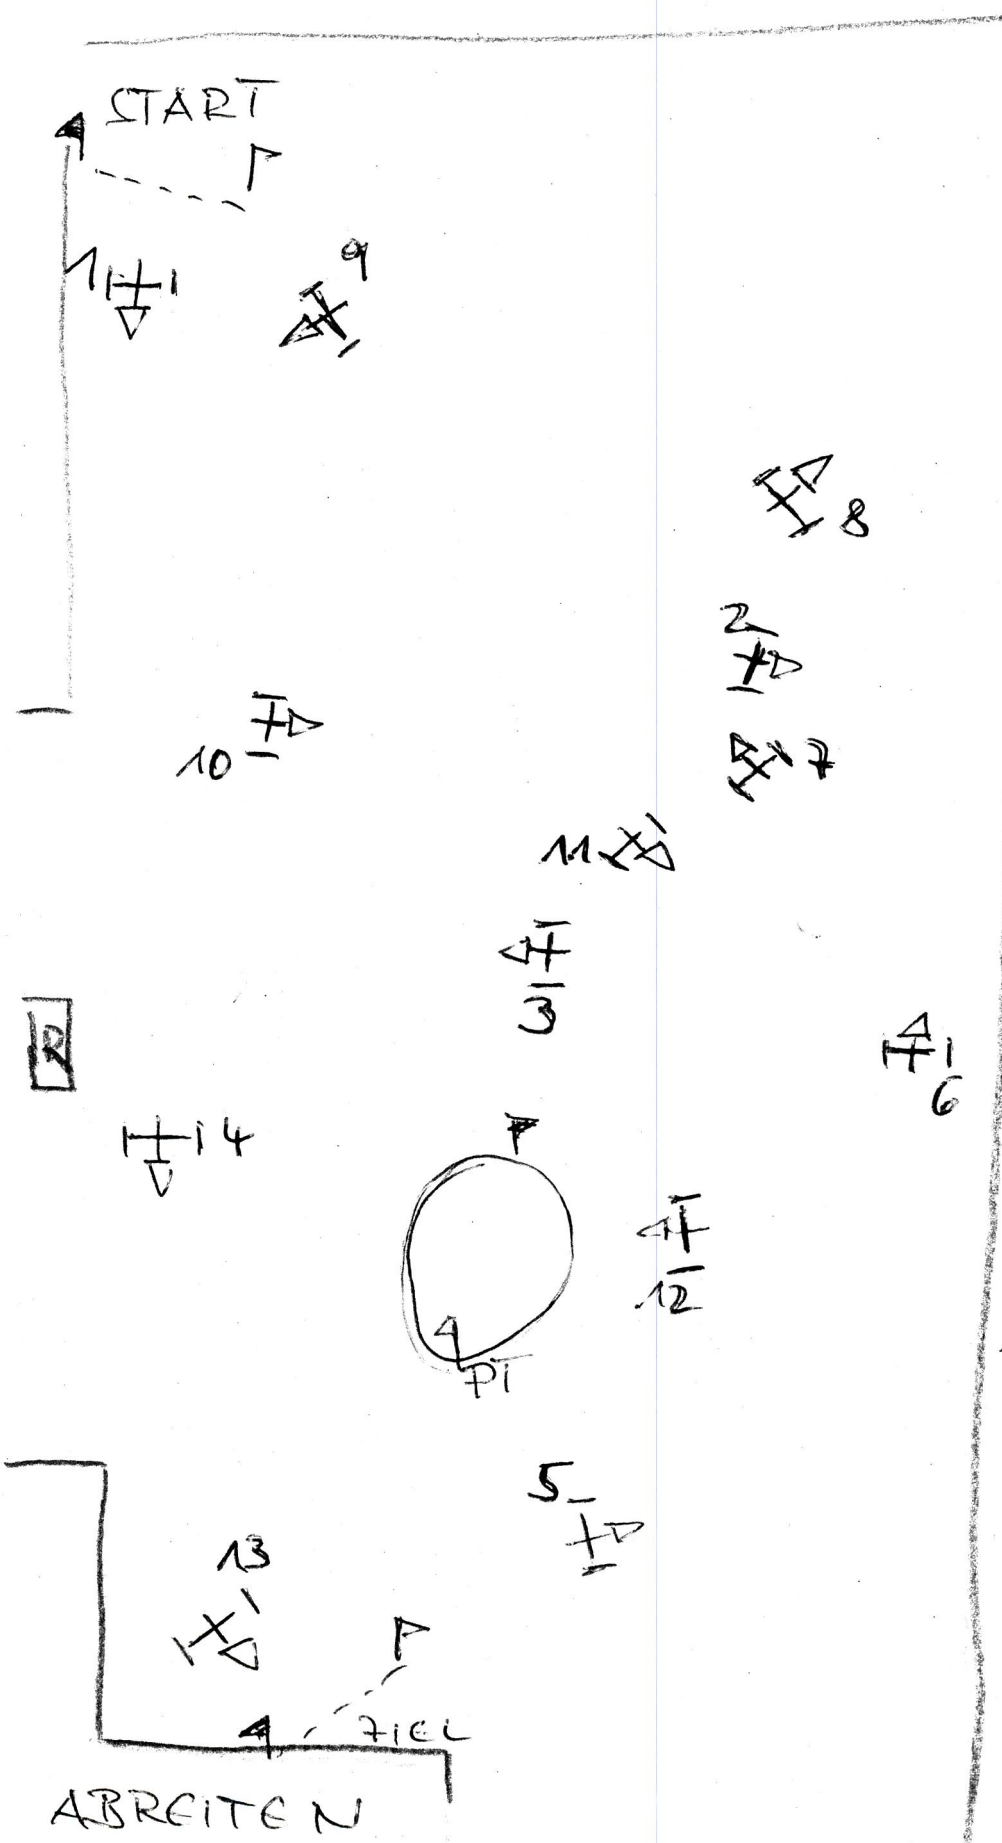 START
1
9
8
2
10
7
11
3
R
6
4
12
PT
5
13
ZIEL
ABREITEN